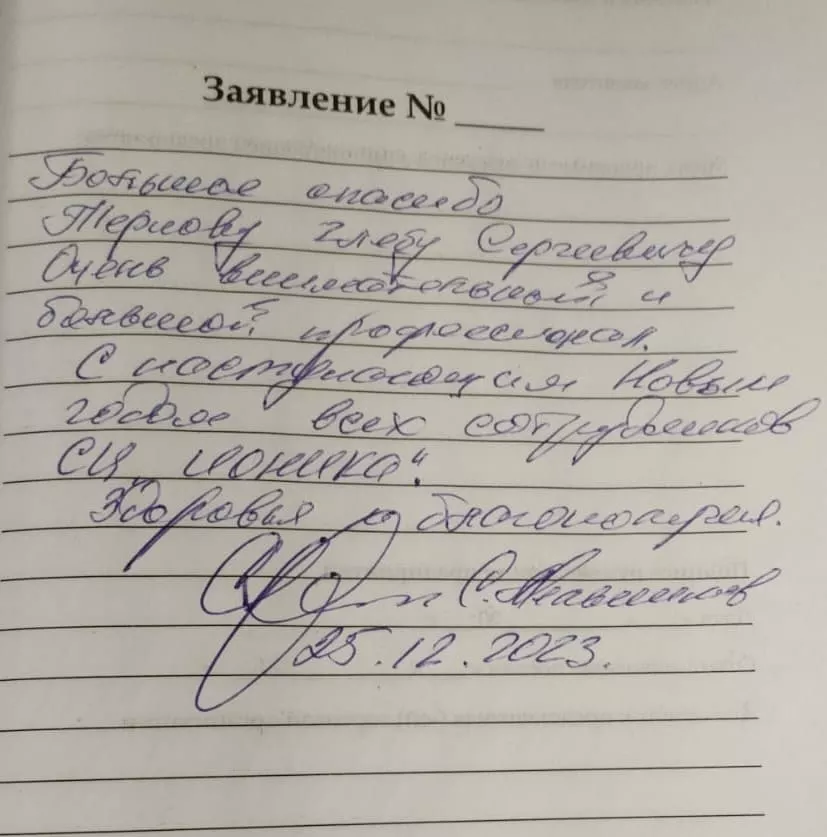 Заявление № ____
Большое спасибо
Глебу Сергеевичу
Очень внимательный и
большой профессионал.
С наступающим Новым
годом всех сотрудников
СЦ „Ионика“.
Здоровья и благополучия.
25.12.2023.